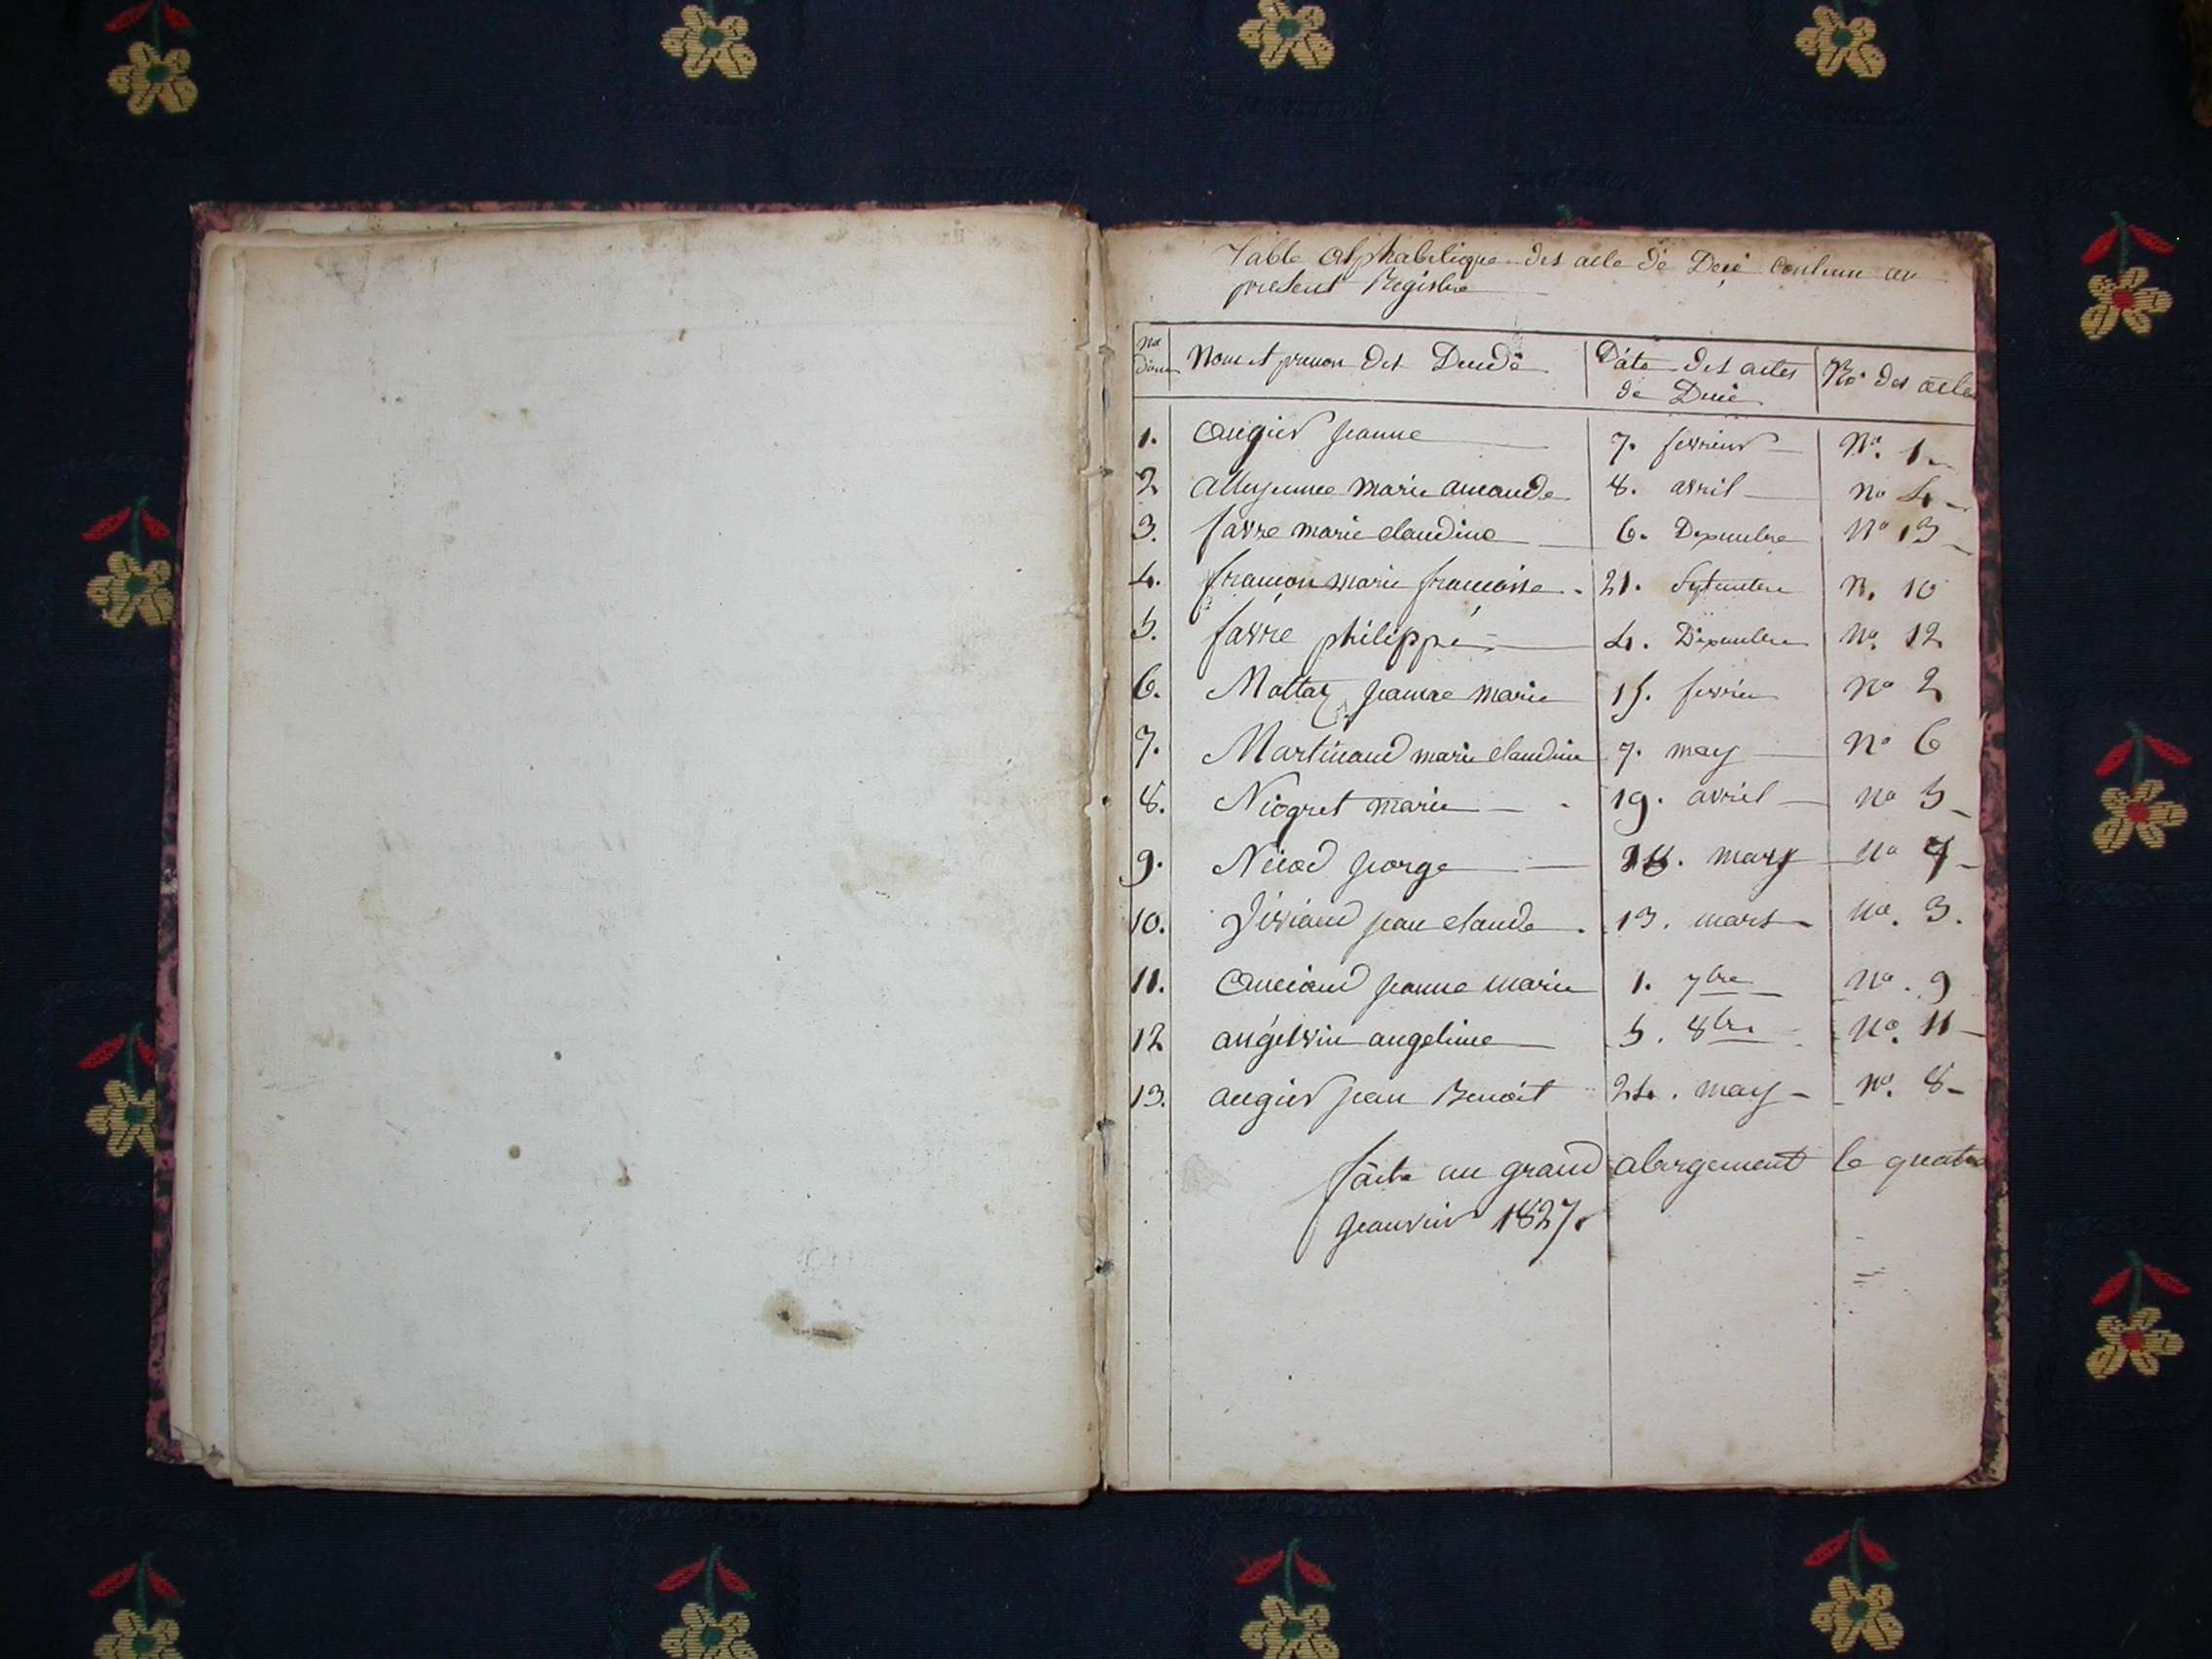 Table alphabetique des acte de Decé contenu au
present Registre
No d'ord
Nom et prenon des Decedé
Date des actes
de Decé
No. des actes
1. augier jeanne 7. fevrier No. 1
2 marie amande 8. avril no 4
3. favre marie claudine 6. Dexembre No 13
4. françon marie francoisse 21. Septembre N. 10
5. favre philippé 4. Dexembre No. 12
6. Mottaz jeanne marie 15. fevrier No 2
7. Martinand marie claudine 7. may No 6
8. Niogret marie 19. avril no 5
9. george may no 7
10. Viviand jean claude 13. mars no. 3.
11. anciand jeanne marie 1. 7bre no. 9
12 angelvin angeline 5. 8bre no. 11
13. augier jean Benoit 24. may no. 8
faite au grand abergement le quatre
jeanvier 1827.